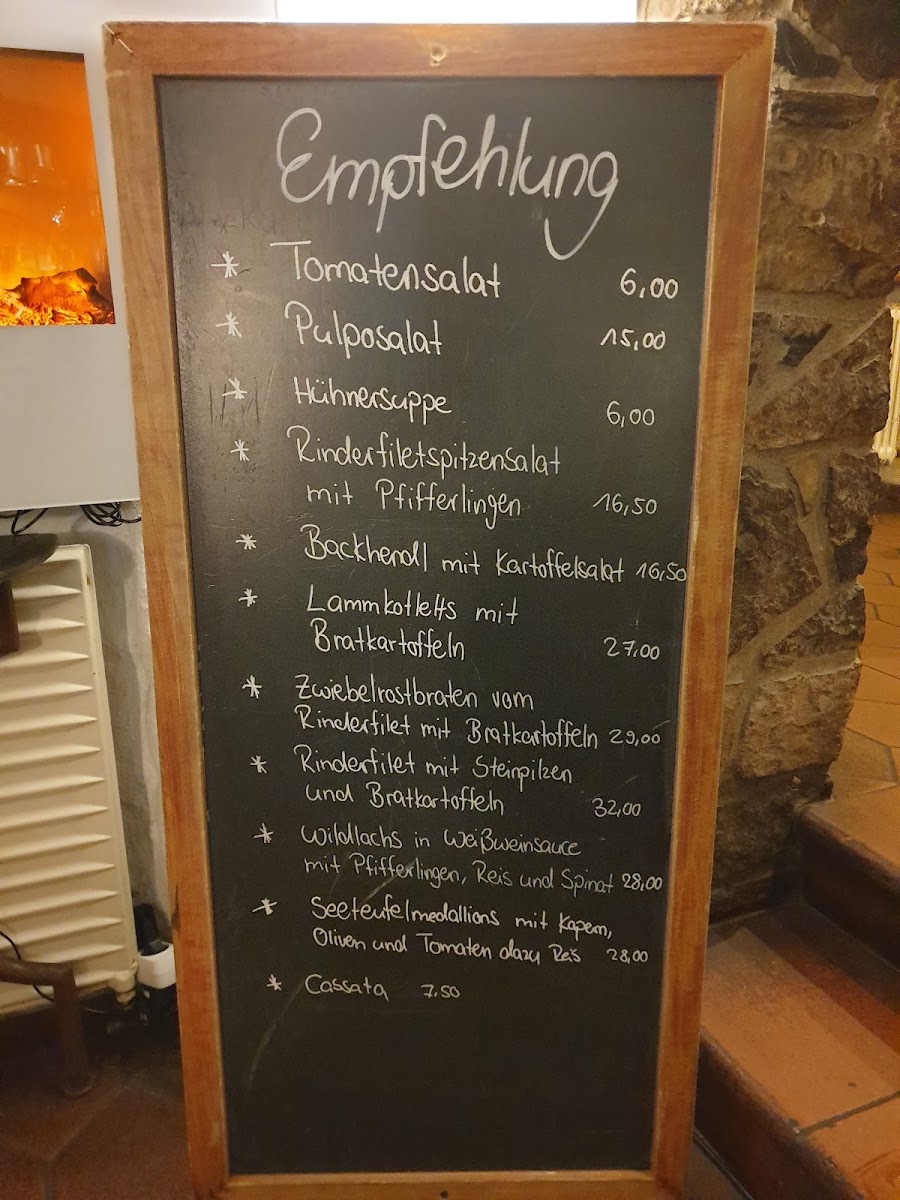 Empfehlung
* Tomatensalat 6,00
* Pulposalat 15,00
* Hühnersuppe 6,00
* Rinderfiletspitzensalat
mit Pfifferlingen 16,50
* Backhendl mit Kartoffelsalat 16,50
* Lammkotletts mit
Bratkartoffeln 27,00
* Zwiebelrostbraten vom
Rinderfilet mit Bratkartoffeln 29,00
* Rinderfilet mit Steinpilzen
und Bratkartoffeln 32,00
* Wildlachs in Weißweinsauce
mit Pfifferlingen, Reis und Spinat 28,00
* Seeteufelmedallions mit Kapern,
Oliven und Tomaten dazu Reis 28,00
* Cassata 7,50